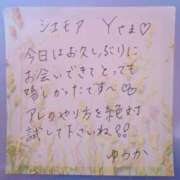 シエモア Yさま♡
今日はお久しぶりに
お会いできてとっても
嬉しかったです〜
アレのやり方を絶対
試して下さいね!!
ゆうか